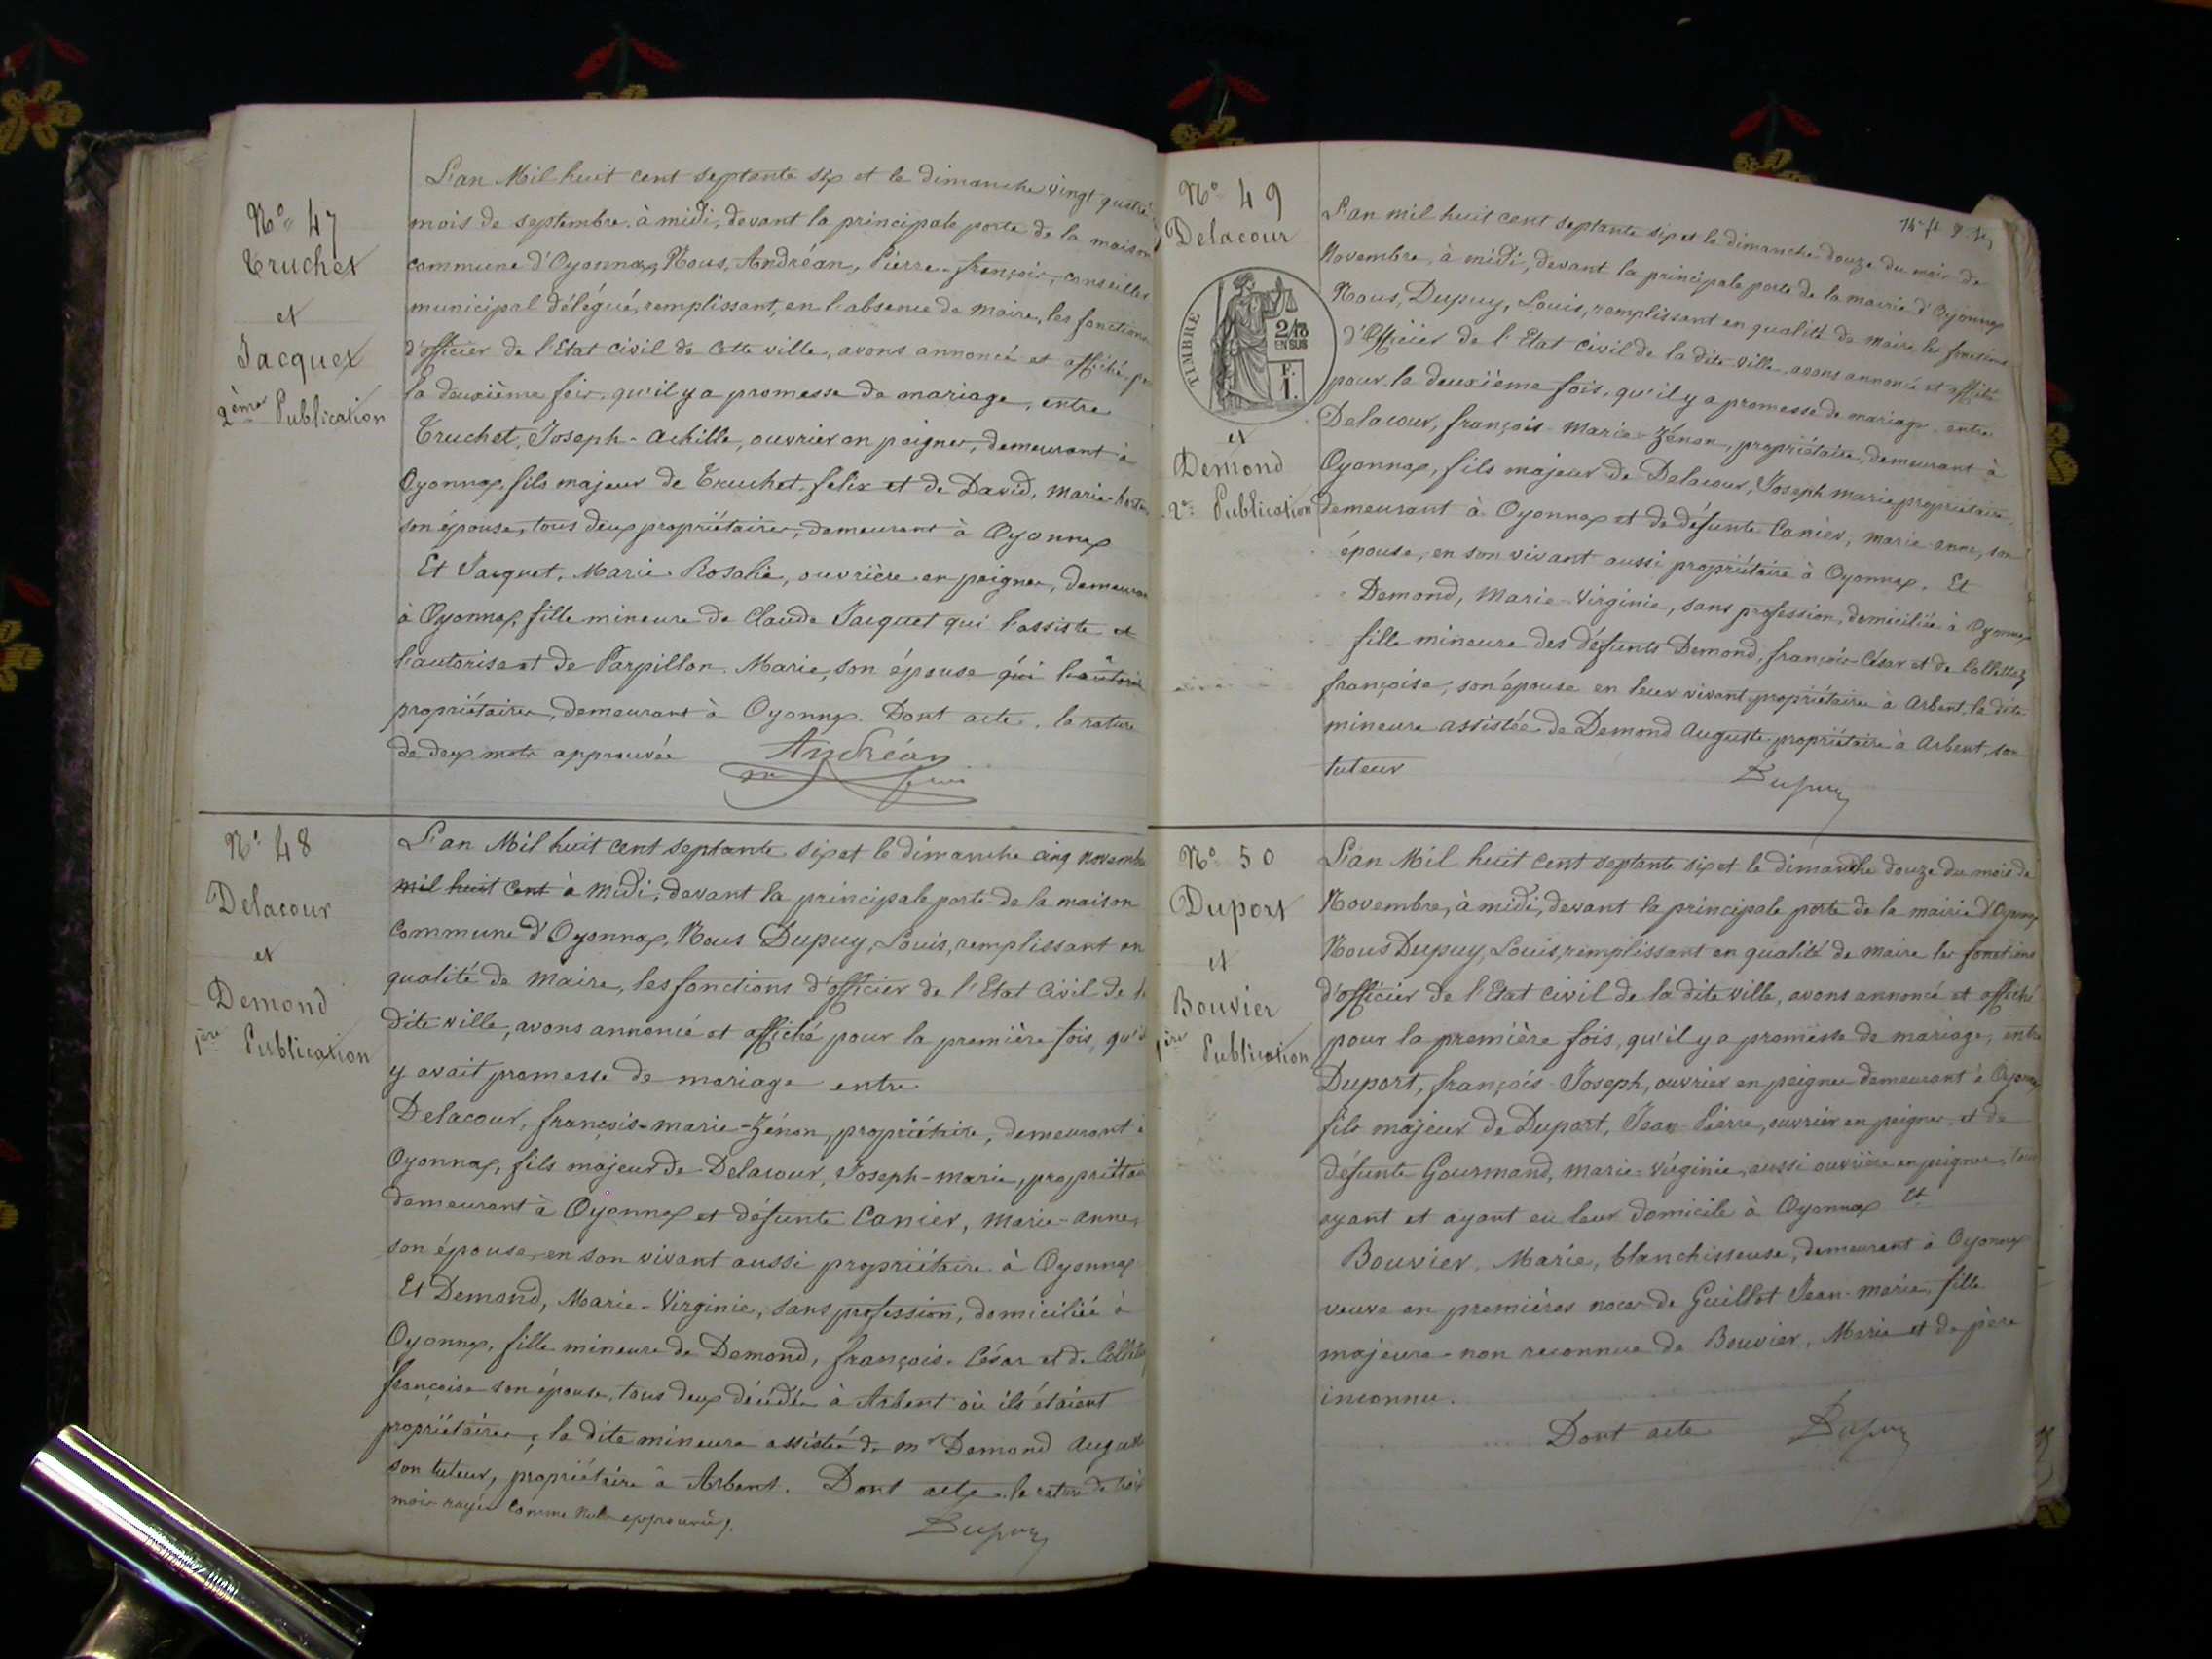 N° 47
Truchet
et
Jacquet
2ème Publication
L'an Mil huit cent septante six et le dimanche vingt quatre
mois de septembre à midi, devant la principale porte de la maison
commune d'Oyonnax, Nous, Andréan, Pierre-françois, conseiller
municipal délégué, remplissant, en l'absence de Maire, les fonctions
d'officier de l'Etat civil de cette ville, avons annoncé et affiché
la deuxième fois, qu'il y a promesse de mariage, entre
Truchet, Joseph-Achille, ouvrier en peignes, demeurant à
Oyonnax, fils majeur de Truchet, felix et de David, Marie
son épouse, tous deux propriétaires, demeurant à Oyonnax
Et Jacquet, Marie Rosalie, ouvrière en peignes, demeurant
à Oyonnax, fille mineure de Claude Jacquet qui l'assiste et
l'autorise et de Parpillon Marie, son épouse qui l'autorise
propriétaires, demeurant à Oyonnax. Dont acte. la rature
de deux mots approuvée Andréan
N° 48
Delacour
et
Demond
1ère Publication
L'an Mil huit cent septante six et le dimanche cinq novembre
mil huit cent à midi, devant la principale porte de la maison
Commune d'Oyonnax, Nous Dupuy, Louis, remplissant en
qualité de Maire, les fonctions d'officier de l'Etat Civil de la
dite ville, avons annoncé et affiché pour la première fois, qu'il
y avait promesse de mariage entre
Delacour, françois-marie-Zénon, propriétaire, demeurant à
Oyonnax, fils majeur de Delacour, Joseph-marie, propriétaire
demeurant à Oyonnax et défunte Canier, Marie-anne,
son épouse, en son vivant aussi propriétaire à Oyonnax
Et Demond, Marie-Virginie, sans profession, domiciliée à
Oyonnax, fille mineure de Demond, françois-César et de Collettaz
françoise son épouse, tous deux décédés à Arbent où ils étaient
propriétaires, la dite mineure assistée de mr Demond Auguste
son tuteur, propriétaire à Arbent. Dont acte. la rature de trois
mots rayés comme nuls approuvée. Dupuy
N° 49
Delacour
TIMBRE
2/10
EN SUS
F.
1.
et
Demond
2e Publication
L'an mil huit cent septante six et le dimanche douze du mois de
Novembre, à midi, devant la principale porte de la mairie d'Oyonnax
Nous, Dupuy, Louis, remplissant en qualité de maire les fonctions
d'Officier de l'Etat civil de la dite ville avons annoncé et affiché
pour la deuxième fois, qu'il y a promesse de mariage entre
Delacour, françois Marie-Zénon, propriétaire, demeurant à
Oyonnax, fils majeur de Delacour, Joseph marie propriétaire
demeurant à Oyonnax et de défunte Canier, marie-anne, son
épouse, en son vivant aussi propriétaire à Oyonnax. Et
Demond, Marie-Virginie, sans profession, domiciliée à Oyonnax
fille mineure des défunts Demond, françois César et de Collettaz
françoise, son épouse en leur vivant propriétaires à Arbent, la dite
mineure assistée de Demond Auguste propriétaire à Arbent, son
tuteur Dupuy
N° 50
Duport
et
Bouvier
1ère Publication
L'an Mil huit cent septante six et le dimanche douze du mois de
Novembre, à midi, devant la principale porte de la mairie d'Oyonnax
Nous Dupuy, Louis, remplissant en qualité de maire les fonctions
d'officier de l'Etat civil de la dite ville, avons annoncé et affiché
pour la première fois, qu'il y a promesse de mariage, entre
Duport, françois Joseph, ouvrier en peignes demeurant à Oyonnax
fils majeur de Duport, Jean Pierre, ouvrier en peignes et de
défunte Gourmand, Marie-Virginie, aussi ouvrière en peignes, tous
ayant et ayant eu leur domicile à Oyonnax Et
Bouvier, Marie, blanchisseuse, demeurant à Oyonnax
veuve en premières noces de Guillot Jean-marie, fille
majeure non reconnue de Bouvier, Marie et de père
inconnu.
Dont acte Dupuy